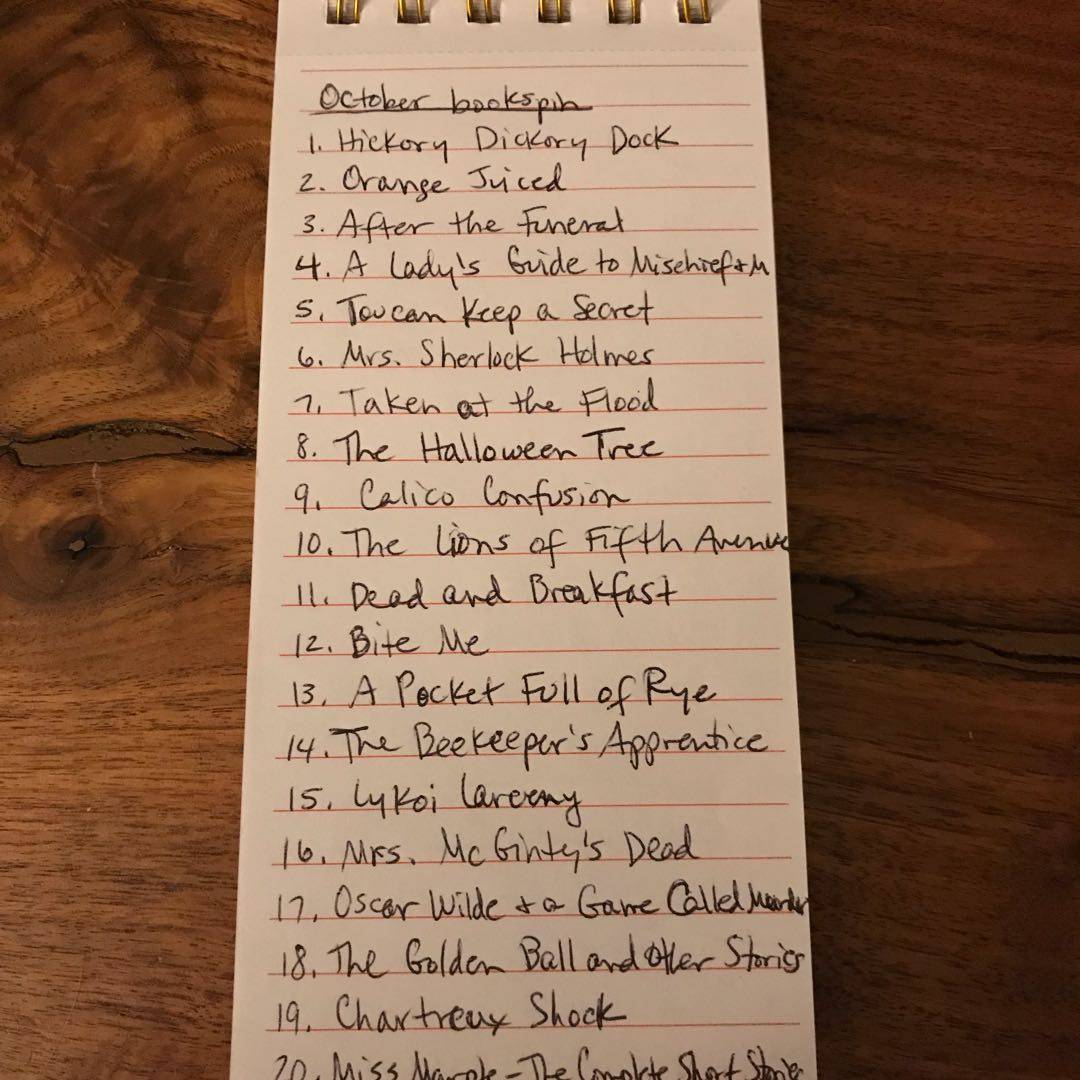 October bookspin
1. Hickory Dickory Dock
2. Orange Juiced
3. After the Funeral
4. A Lady's Guide to Mischief + M
5. Toucan Keep a Secret
6. Mrs. Sherlock Holmes
7. Taken at the Flood
8. The Halloween Tree
9. Calico Confusion
10. The Lions of Fifth Avenue
11. Dead and Breakfast
12. Bite Me
13. A Pocket Full of Rye
14. The Beekeeper's Apprentice
15. Lykoi Larceny
16. Mrs. McGinty's Dead
17. Oscar Wilde + a Game Called Murder
18. The Golden Ball and Other Stories
19. Chartreux Shock
20. Miss Marple - The Complete Short Stories